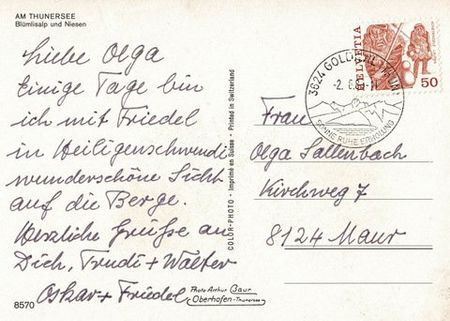 AM THUNERSEE
Blümlisalp und Niesen
Liebe Olga
Einige Tage bin
ich mit Friedel
in Heiligenschwendi
wunderschöne Sicht
auf die Berge.
Herzliche Grüsse an
Dich, Trudi + Walter
Oskar + Friedel
8570
COLOR-PHOTO • Imprimé en Suisse - Printed in Switzerland
Photo Arthur Baur
Oberhofen-Thunersee
3624 GOLDIWIL (THUN)
SONNE RUHE ERHOLUNG
HELVETIA
50
Frau
Olga Sallenbach
Kirchweg 7
8124 Maur